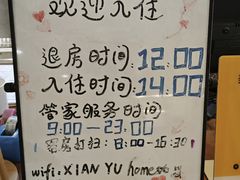 欢迎入住
退房时间:12.00
入住时间:14.00
管家服务时间
9:00—23:00
客房打扫:8:00-16:30
wifi:XIAN YU home